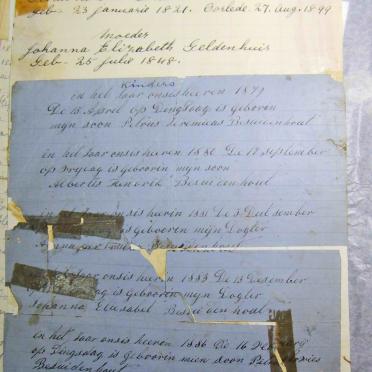 Geb 23 januarie 1821. Oorlede. 27. Aug. 1899
moeder
Johanna Elizabeth Geldenhuis
Geb. 25 julie 1848.
Kinders
in het Jaar onsis heeren 1879
De 15 April op Dingsdag is geboren
mijn soon Petrus Jeremias Besuidenhout
in het Jaar onsis heeren 1880 De 17 September
op Vrydag is gebooren mijn soon
Albertis Hendrik Besuidenhout
in het Jaar onsis heerin 1881 De 3 December
is gebooren mijn Dogter
Besuidenhout
Jaar onsis heeren 1883 De 13 Desember
is gebooren mijn Dogter
Johanna Elisabet Besuidenhout
in het Jaar onsis heeren 1886 De 16
op Dingsdag is gebooren mien soon
Besuidenhout